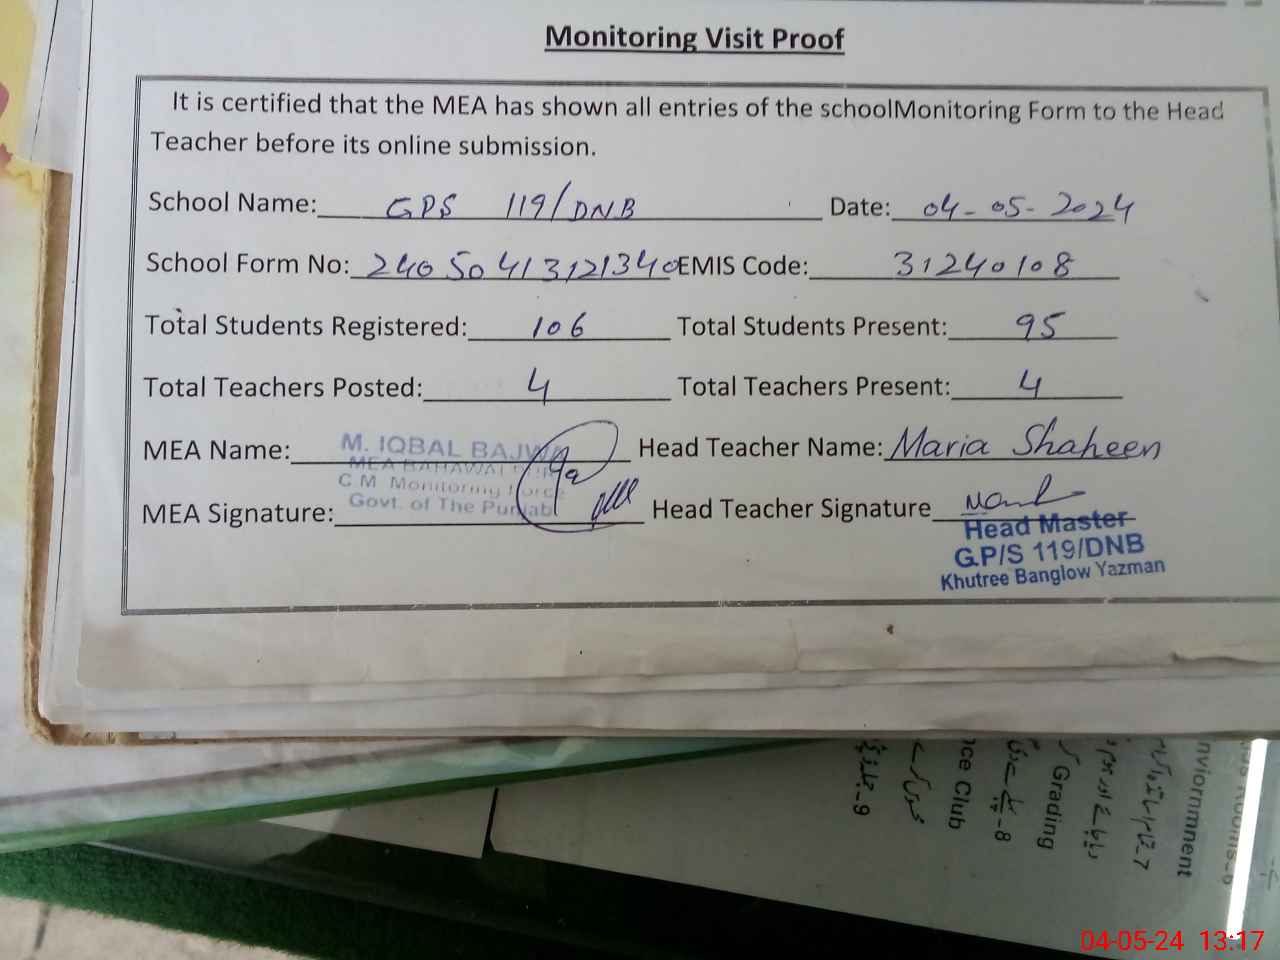 Monitoring Visit Proof
It is certified that the MEA has shown all entries of the schoolMonitoring Form to the Head
Teacher before its online submission.
School Name: GPS 119/DNB Date: 04-05-2024
School Form No: 24050413121340 EMIS Code: 31240108
Total Students Registered: 106 Total Students Present: 95
Total Teachers Posted: 4 Total Teachers Present: 4
MEA Name: Head Teacher Name: Maria Shaheen
M. IQBAL BAJWA
MEA BAHAWALPUR
C M Monitoring Force
Govt. of The Punjab
MEA Signature: Head Teacher Signature
Head Master
G.P/S 119/DNB
Khutree Banglow Yazman
nviornmnent
Grading
nce Club
04-05-24 13:17